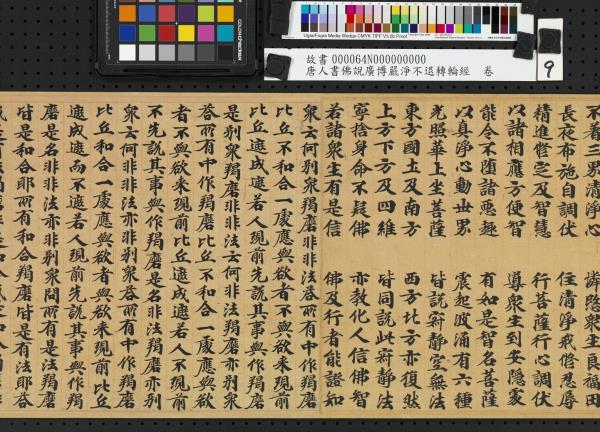 COLORCHECKER
Ugra/Fogra Media Wedge CMYK TIFF V3.0b Proof
故書 000064N000000000
唐人書佛說廣博嚴淨不退轉輪經 卷
9
不着三界清淨心 憐愍衆生良福田
長夜布施自調伏 住清淨戒脩忍辱
精進脩定及智慧 行菩薩行心調伏
以諸相應方便智 導衆生到安隱處
能令不墮諸惡趣 有如是智名菩薩
以真淨心動世界 震起波涌有六種
光照華上坐菩薩 皆說寂靜空無法
東方國土及南方 西方北方亦復然
上方下方及四維 皆同說此寂靜法
寧捨身命不疑佛 亦教化人信佛智
若諸衆生有是信 佛及行者能證知
衆云何別衆羯磨非非法荅所有中作羯磨
比丘不和合一處應與欲者不與欲來現前
比丘遮成遮若人現前先說其事與作羯磨
是別衆羯磨非非法云何非法羯磨亦別衆
荅所有中作羯磨比丘不和合一處應與欲
者不與欲來現前比丘遮成遮若人不現前
不先說其事與作羯磨是名非法羯磨亦別
衆云何非非法亦非別衆荅所有中作羯磨
比丘和合一處應與欲者與欲來現前比丘
遮成而不遮若人現前先說其事與作羯
磨是名非非法亦非別衆問所有非法羯磨
皆是和合耶所有和合羯磨皆是有法耶荅